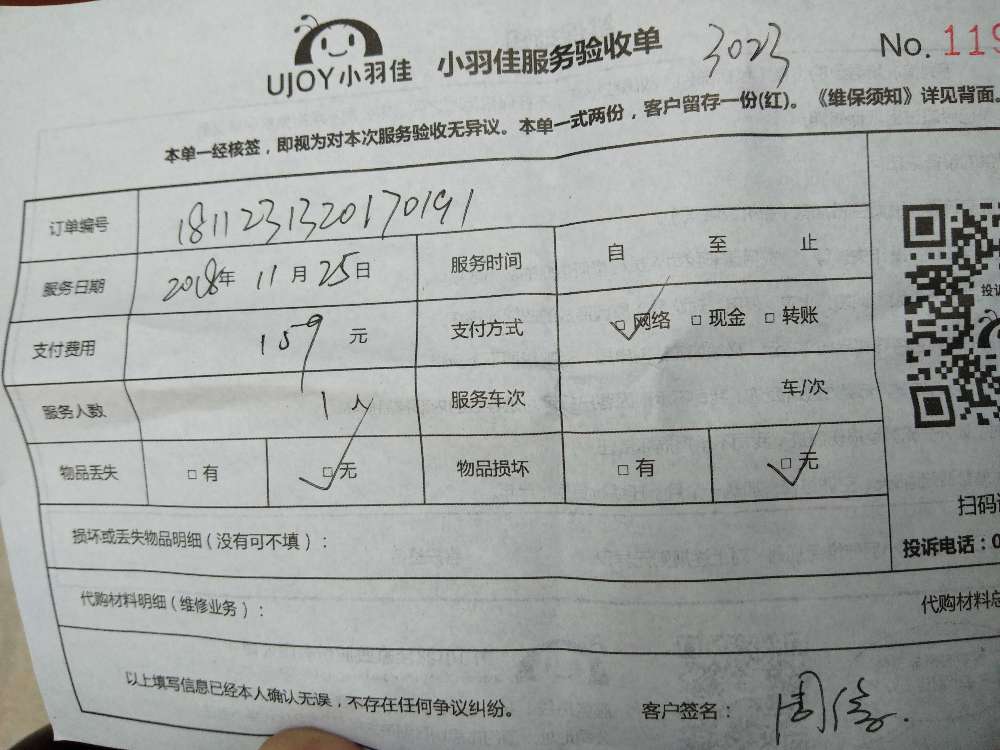 UJOY小羽佳 小羽佳服务验收单 3023 No. 119
本单一经核签，即视为对本次服务验收无异议。本单一式两份，客户留存一份(红)。《维保须知》详见背面。
订单编号 1811231320170191
服务日期 2018年 11月 25日 服务时间 自 至 止
支付费用 159 元 支付方式 □网络 □现金 □转账
服务人数 1人 服务车次 车/次
物品丢失 □有 □无 物品损坏 □有 □无
投诉
扫码
损坏或丢失物品明细（没有可不填）：
投诉电话：0
代购材料明细（维修业务）：
代购材料总
以上填写信息已经本人确认无误，不存在任何争议纠纷。 客户签名：周